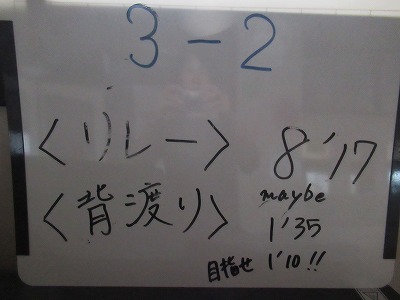 3-2
〈リレー〉 8'17
maybe
〈背渡り〉 1'35
目指せ 1'10!!